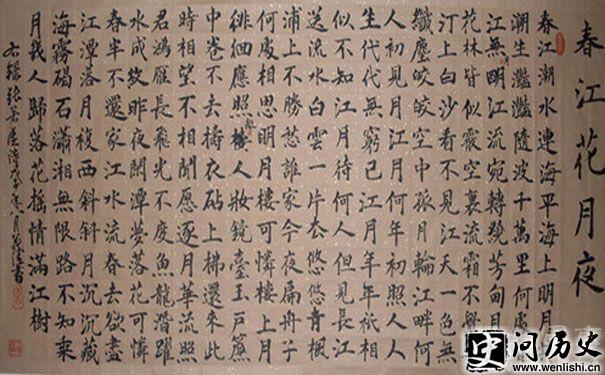 春江花月夜
春江潮水連海平海上明月
潮生灩灩隨波千萬里何處
江無明江流宛轉繞芳甸月
花林皆似霰空裏流霜不覺
汀上白沙看不見江天一色無
纖塵皎皎空中孤月輪江畔何
人初見月江月何年初照人人
生代代無窮已江月年年衹相
似不知江月待何人但見長江
送流水白雲一片去悠悠青楓
浦上不勝愁誰家今夜扁舟子
何處相思明月樓可憐樓上月
徘徊應照樓人妝鏡臺玉戶簾
中卷不去擣衣砧上拂還來此
時相望不相聞願逐月華流照
君鴻雁長飛光不度魚龍潛躍
水成紋昨夜閒潭夢落花可憐
春半不還家江水流春去欲盡
江潭落月複西斜斜月沉沉藏
海霧碣石瀟湘無限路不知乘
月幾人歸落花搖情滿江樹
右錄張若虛詩戊子年
问历史
www.wenlishi.cn